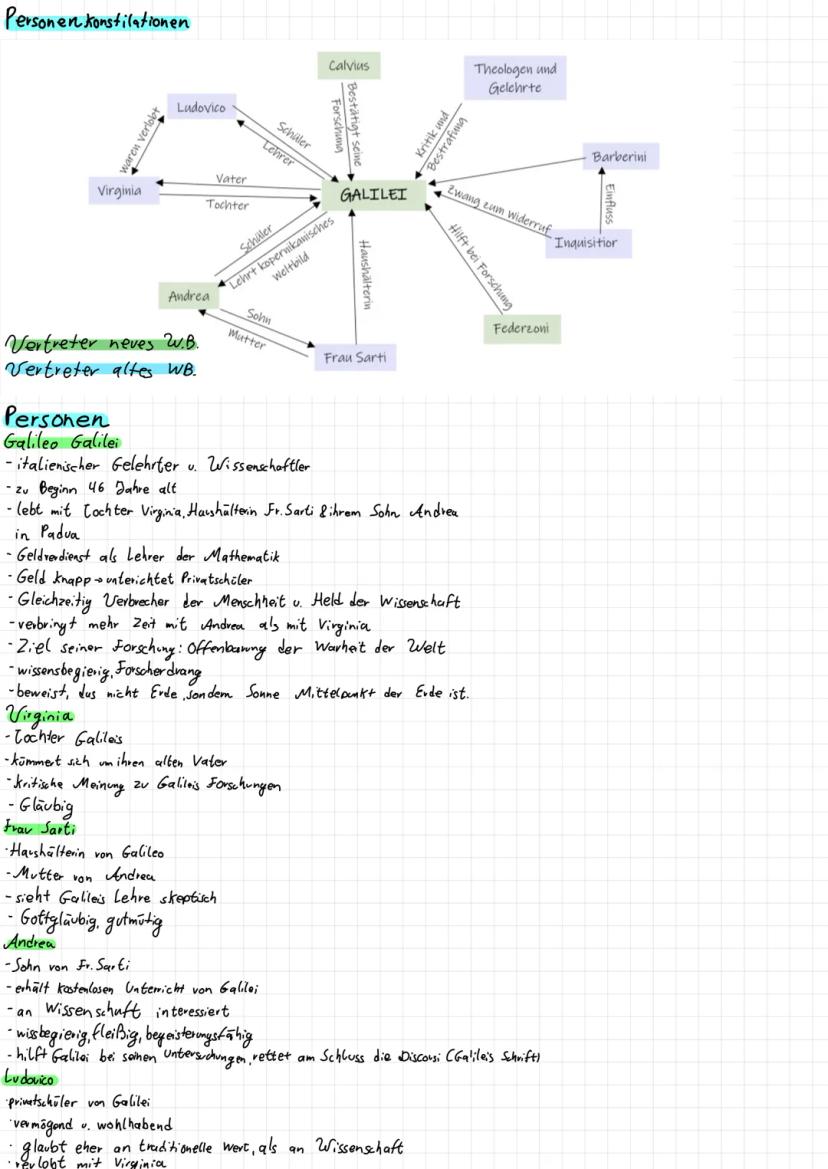 Personenkonstilationen
Calvius
Theologen und
Gelehrte
Ludovico
Bestätigt seine
Forschung
Kritik und
Bestrafung
waren verlobt
Schüler
Lehrer
Barberini
Virginia
Vater
Tochter
GALILEI
Zwang zum Widerruf
Einfluss
Inquisitior
Schüler
Lehrt kopernikanisches
Weltbild
Haushälterin
Hilft bei Forschung
Andrea
Sohn
Mutter
Federzoni
Frau Sarti
Vertreter neues W.B.
Vertreter altes WB.
Personen
Galileo Galilei
- italienischer Gelehrter u. Wissenschaftler
- zu Beginn 46 Jahre alt
- lebt mit Tochter Virginia, Haushälterin Fr. Sarti & ihrem Sohn Andrea
in Padua
- Geldverdienst als Lehrer der Mathematik
- Geld knapp → unterichtet Privatschüler
- Gleichzeitig Verbrecher der Menschheit u. Held der Wissenschaft
- verbringt mehr Zeit mit Andrea als mit Virginia
- Ziel seiner Forschung: Offenbarung der Warheit der Welt
- wissensbegierig, Forscherdrang
- beweist, das nicht Erde, sondern Sonne Mittelpunkt der Erde ist.
Virginia
- Tochter Galileis
- kümmert sich um ihren alten Vater
- kritische Meinung zu Galileis Forschungen
- Gläubig
Frau Sarti
- Haushälterin von Galileo
- Mutter von Andrea
- sieht Galileis Lehre skeptisch
- Gottgläubig, gutmütig
Andrea
- Sohn von Fr. Sarti
- erhält kostenlosen Unterricht von Galilei
- an Wissenschaft interessiert
- wissbegierig, fleißig, begeisterungsfähig
- hilft Galilei bei seinen Untersuchungen, rettet am Schluss die Discorsi (Galileis Schrift)
Ludovico
· privatschüler von Galilei
· vermögend u. wohlhabend
· glaubt eher an traditionelle Wert, als an Wissenschaft
· verlobt mit Virginia